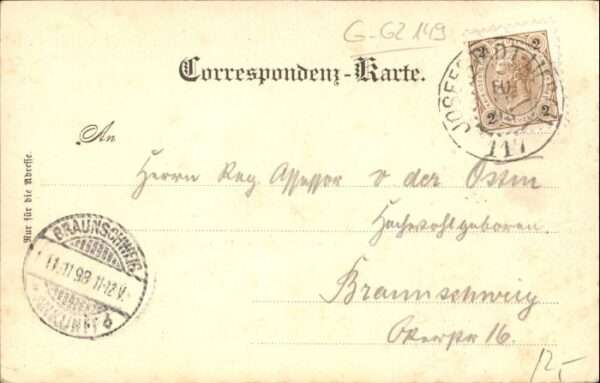 G-GZ 149
Correspondenz-Karte.
2 2
2 2
117
An
Herrn Reg Assessor v der Osten
Hochwohlgeboren
Braunschweig
Okerstr 16.
Nur für die Adresse.
BRAUNSCHWEIG
11.11 98 11-12 V.
12,-